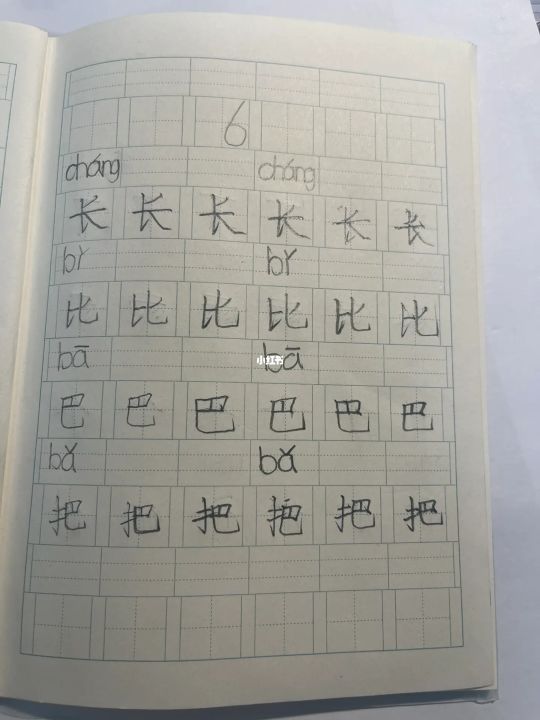 6
cháng cháng
长 长 长 长 长 长
bǐ bǐ
比 比 比 比 比 比
bā bā
小红书
巴 巴 巴 巴 巴 巴
bǎ bǎ
把 把 把 把 把 把